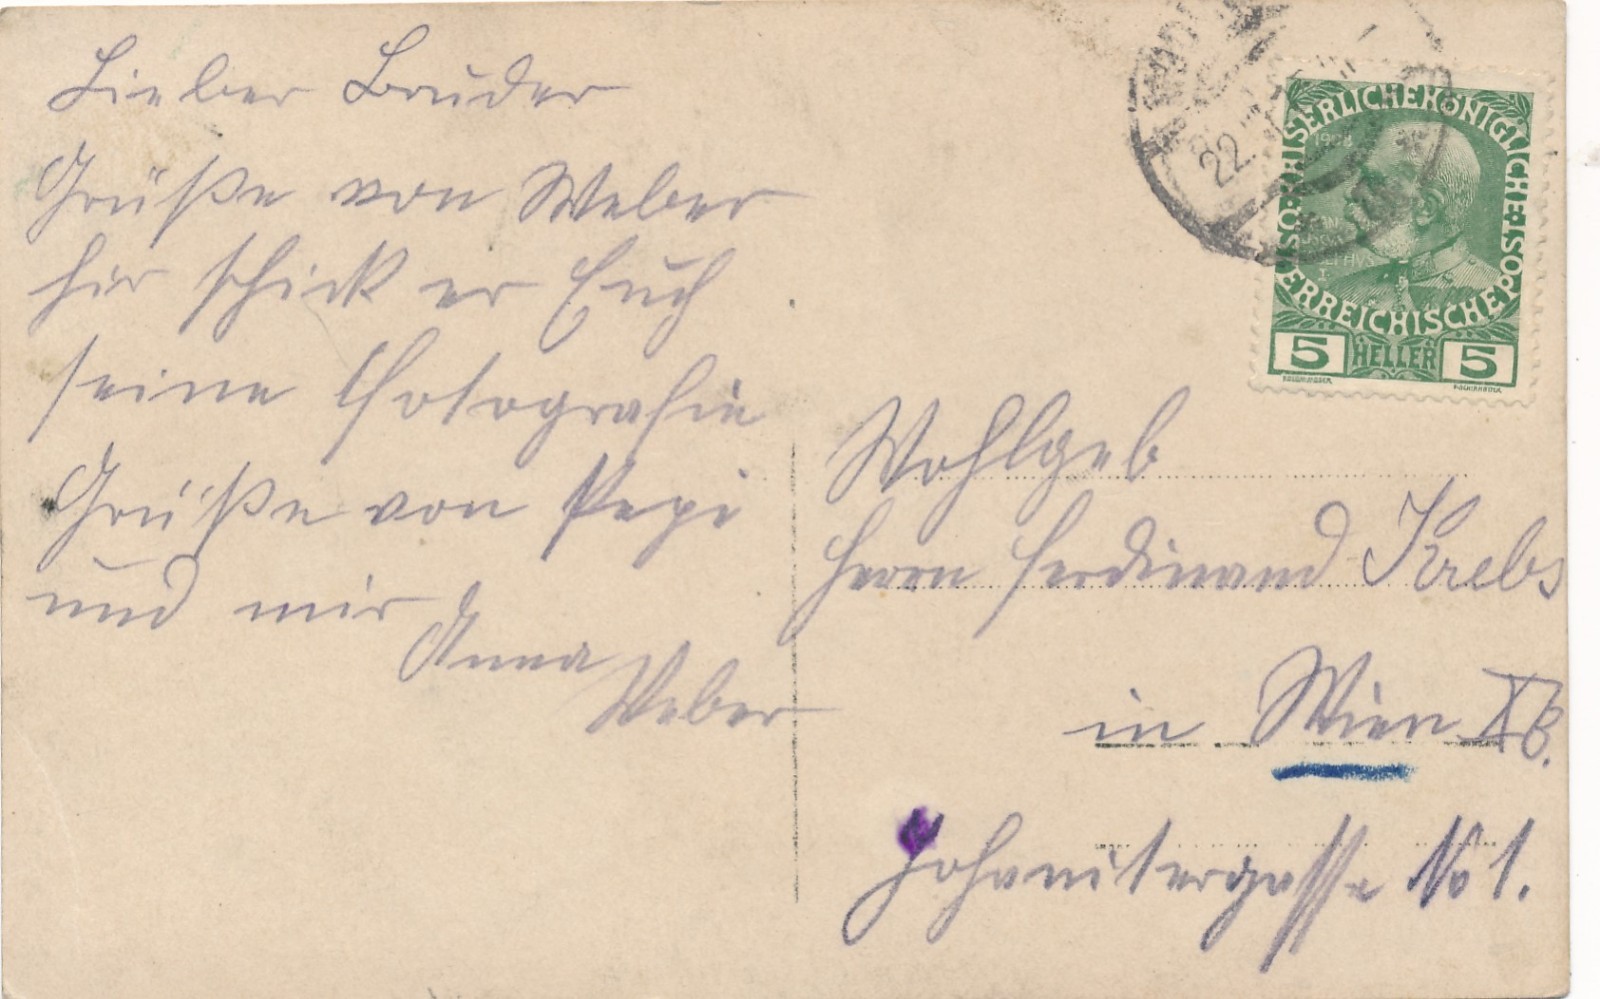 Lieber Bruder
Grüße von Weber
hir schick er Euch
seine Fotografie
Grüße von Pepi
und mir
Anna
Weber
22.
KAISERLICHE KÖNIGLICHE
ÖSTERREICHISCHE POST
1908
5 HELLER 5
Wohlgeb
Herrn Ferdinand Krebs
in Wien XB.
Johanitergasse No 1.